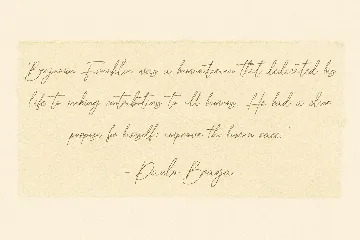 "Benjamin Franklin was a humanitarian that dedicated his
life to making contributions to all humans. He had a clear
purpose for himself: improve the human race."
- Paulo Braga